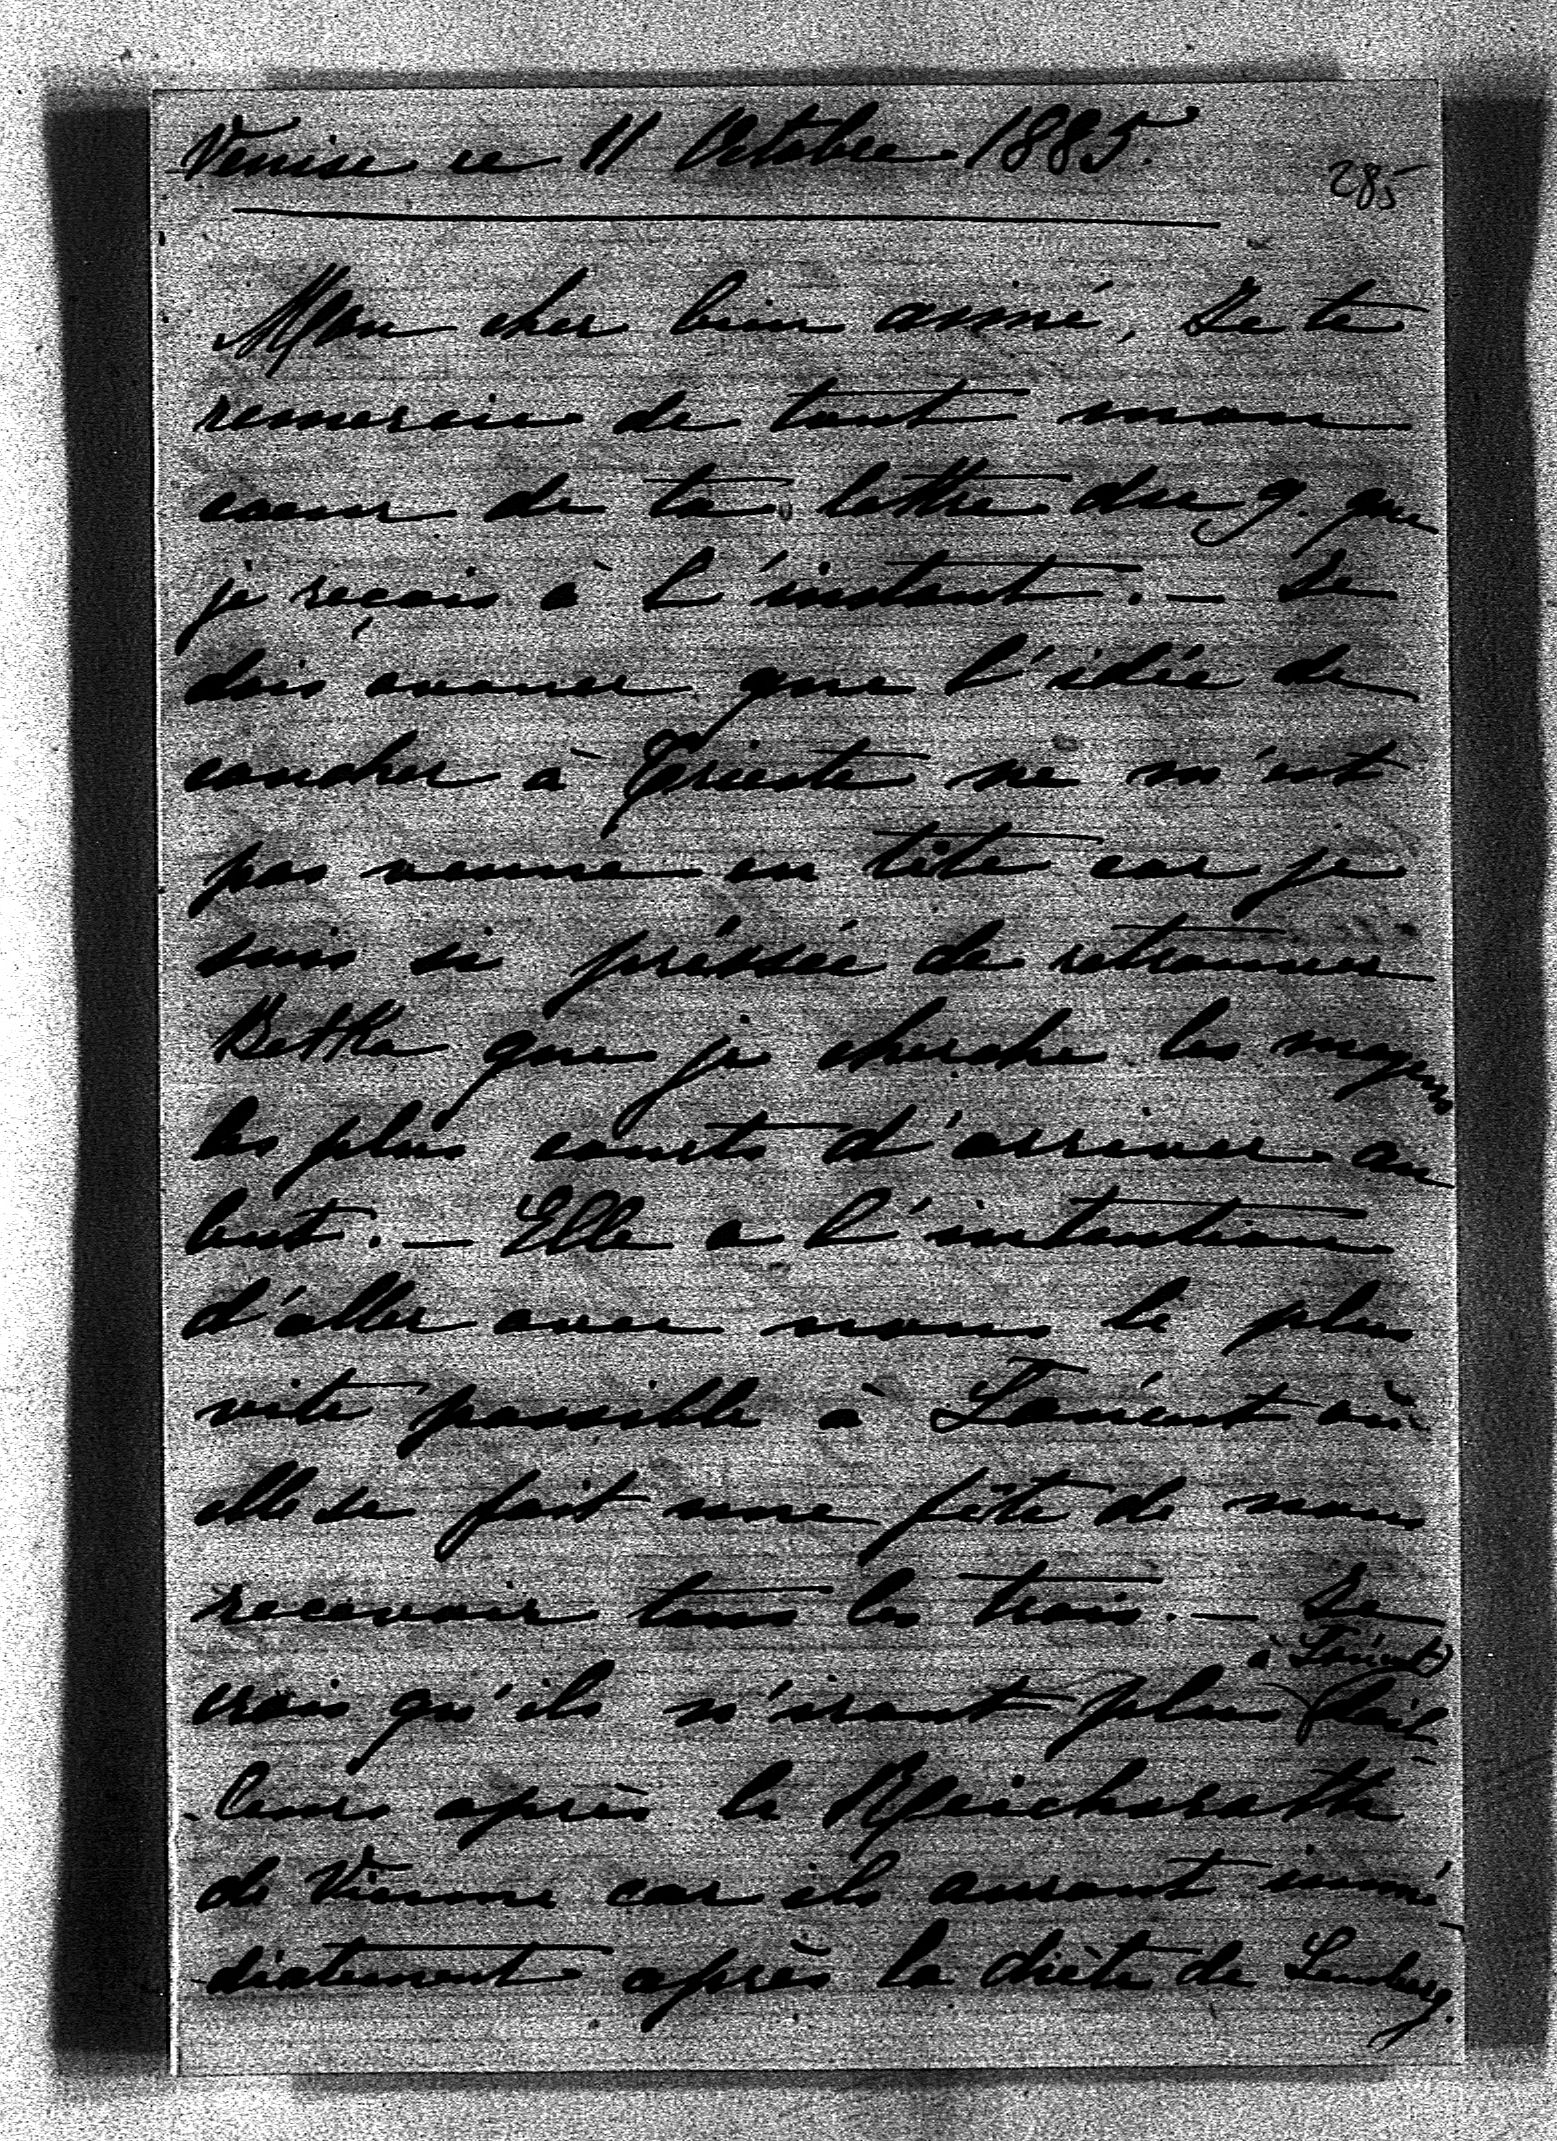 Venise ce 11 Octobre 1885.
285
Mon cher bien aimé, Je te
remercie de tout mon
coeur de ta lettre du 9. que
je reçois à l'instant. — Je
dois avouer que l'idée de
coucher à Trieste ne m'est
pas venue en tête car je
suis si préssée de retrouver
Betka que je cherche les moyens
les plus courts d'arriver au
but. — Elle a l'intention
d'aller avec nous le plus
vite possible à Łańcut où
elle se fait une fête de nous
recevoir tous les trois. — Je
à Łańcut
crois qu'ils n'iront plus d'ail-
leurs après le Reichsrath
de Vienne car ils auront immé-
diatement après la diète de Lemberg.